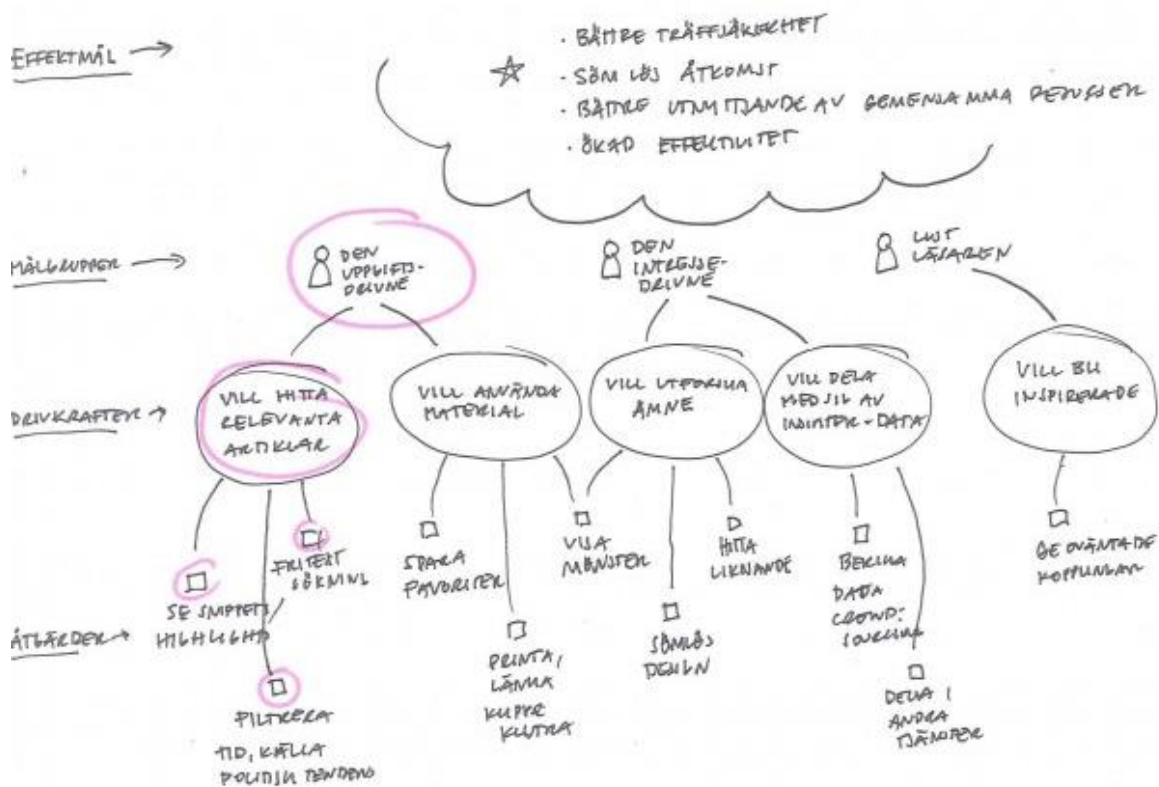 EFFEKTMÅL
· BÄTTRE TRÄFFSÄKERHET
· SÖMLÖS ÅTKOMST
· BÄTTRE UTNYTTJANDE AV GEMENSAMMA RESURSER
· ÖKAD EFFEKTIVITET
MÅLGRUPPER
DEN
UPPGIFTS-
DRIVNE
DEN
INTRESSE-
DRIVNE
LUST
LÄSAREN
DRIVKRAFTER
VILL HITTA
RELEVANTA
ARTIKLAR
VILL ANVÄNDA
MATERIAL
VILL UTFORSKA
ÄMNE
VILL DELA
MED SIG AV
INSIKTER - DATA
VILL BLI
INSPIRERADE
ÅTGÄRDER
SE SNIPPETS
HIGHLIGHT
FRITEXT
SÖKNING
FILTRERA
TID, KÄLLA
POLITISK TENDENS
SPARA
FAVORITER
PRINTA,
LÄNKA
KLIPP
KLISTRA
VISA
MÖNSTER
SÖMLÖS
DESIGN
HITTA
LIKNANDE
BERIKA
DATA
CROWD-
SOURCING
DELA I
ANDRA
TJÄNSTER
GE OVÄNTADE
KOPPLINGAR